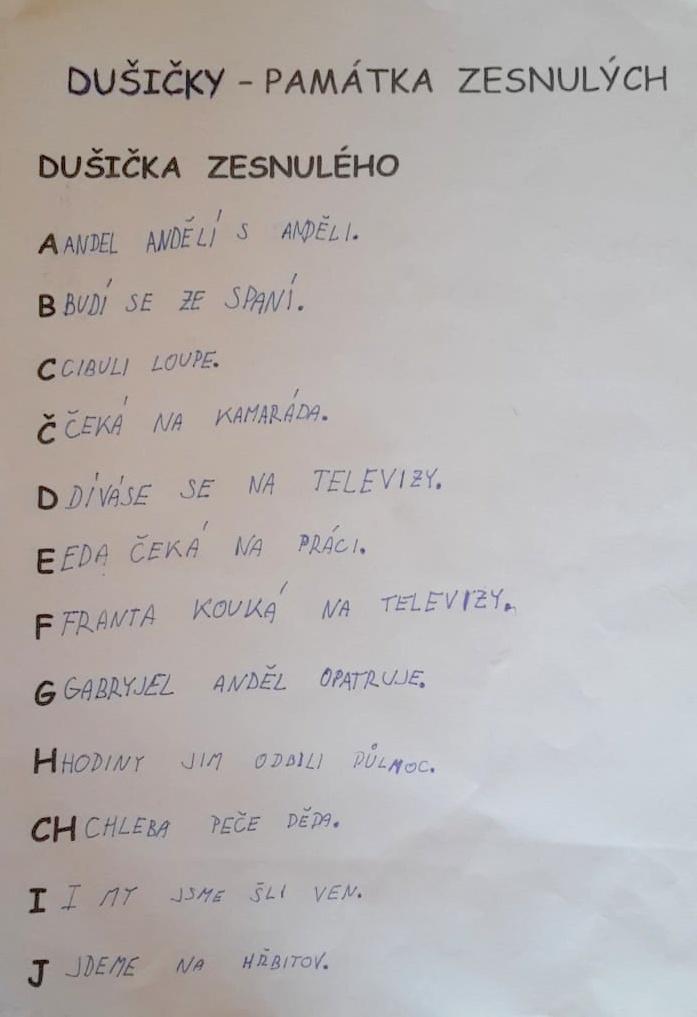 DUŠIČKY – PAMÁTKA ZESNULÝCH
DUŠIČKA ZESNULÉHO
A ANDEL ANDĚLÍ S ANDĚLI.
B BUDÍ SE ZE SPANÍ.
C CIBULI LOUPE.
Č ČEKÁ NA KAMARÁDA.
D DÍVÁSE SE NA TELEVIZY.
E EDA ČEKÁ NA PRÁCI.
F FRANTA KOUKÁ NA TELEVIZY.
G GABRYJEL ANDĚL OPATRUJE.
H HODINY JIM ODBILI PŮLNOC.
CH CHLEBA PEČE DĚDA.
I I MY JSME ŠLI VEN.
J JDEME NA HŘBITOV.